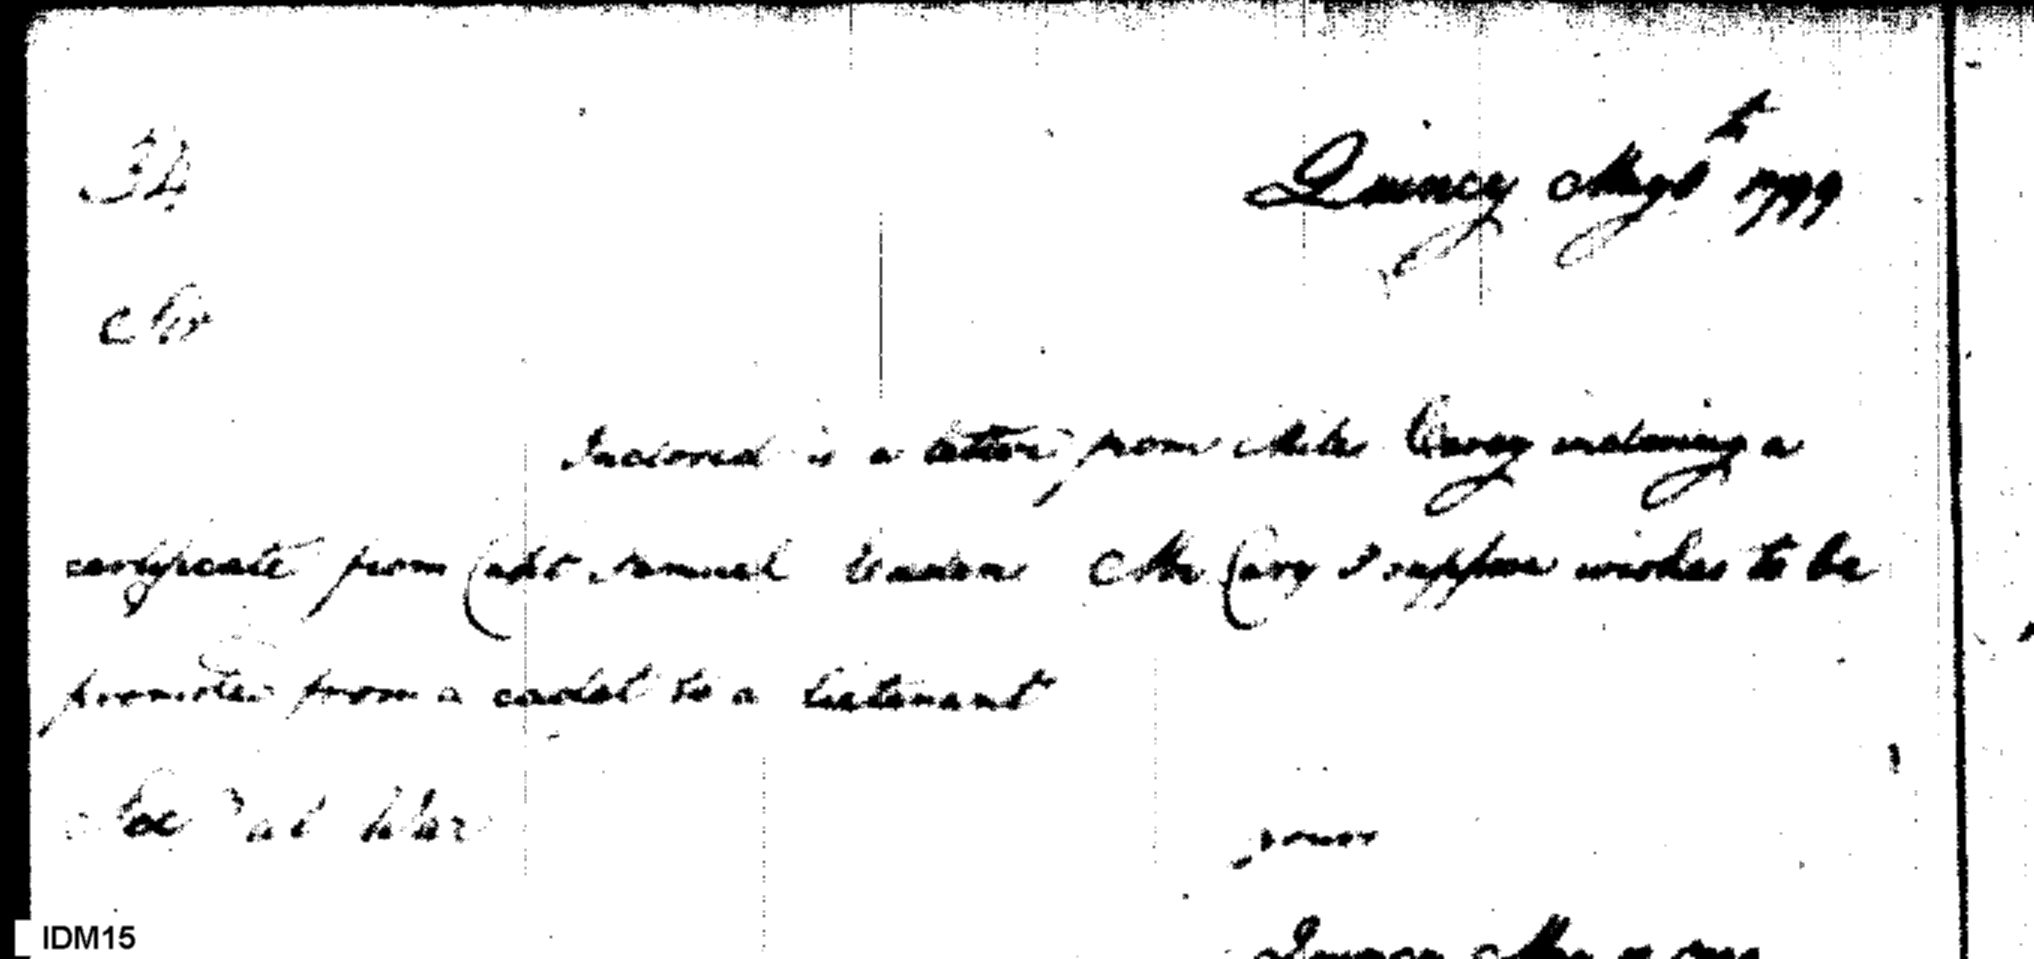 34
Quincy May 8th 1799
Sir
Inclosed is a letter from Miles Cary inclosing a
certificate from Capt Samuel Eaden Mr Cary I suppose wishes to be
promoted from a cadet to a lieutenant
Sec at War
yours
Quincy May
IDM15